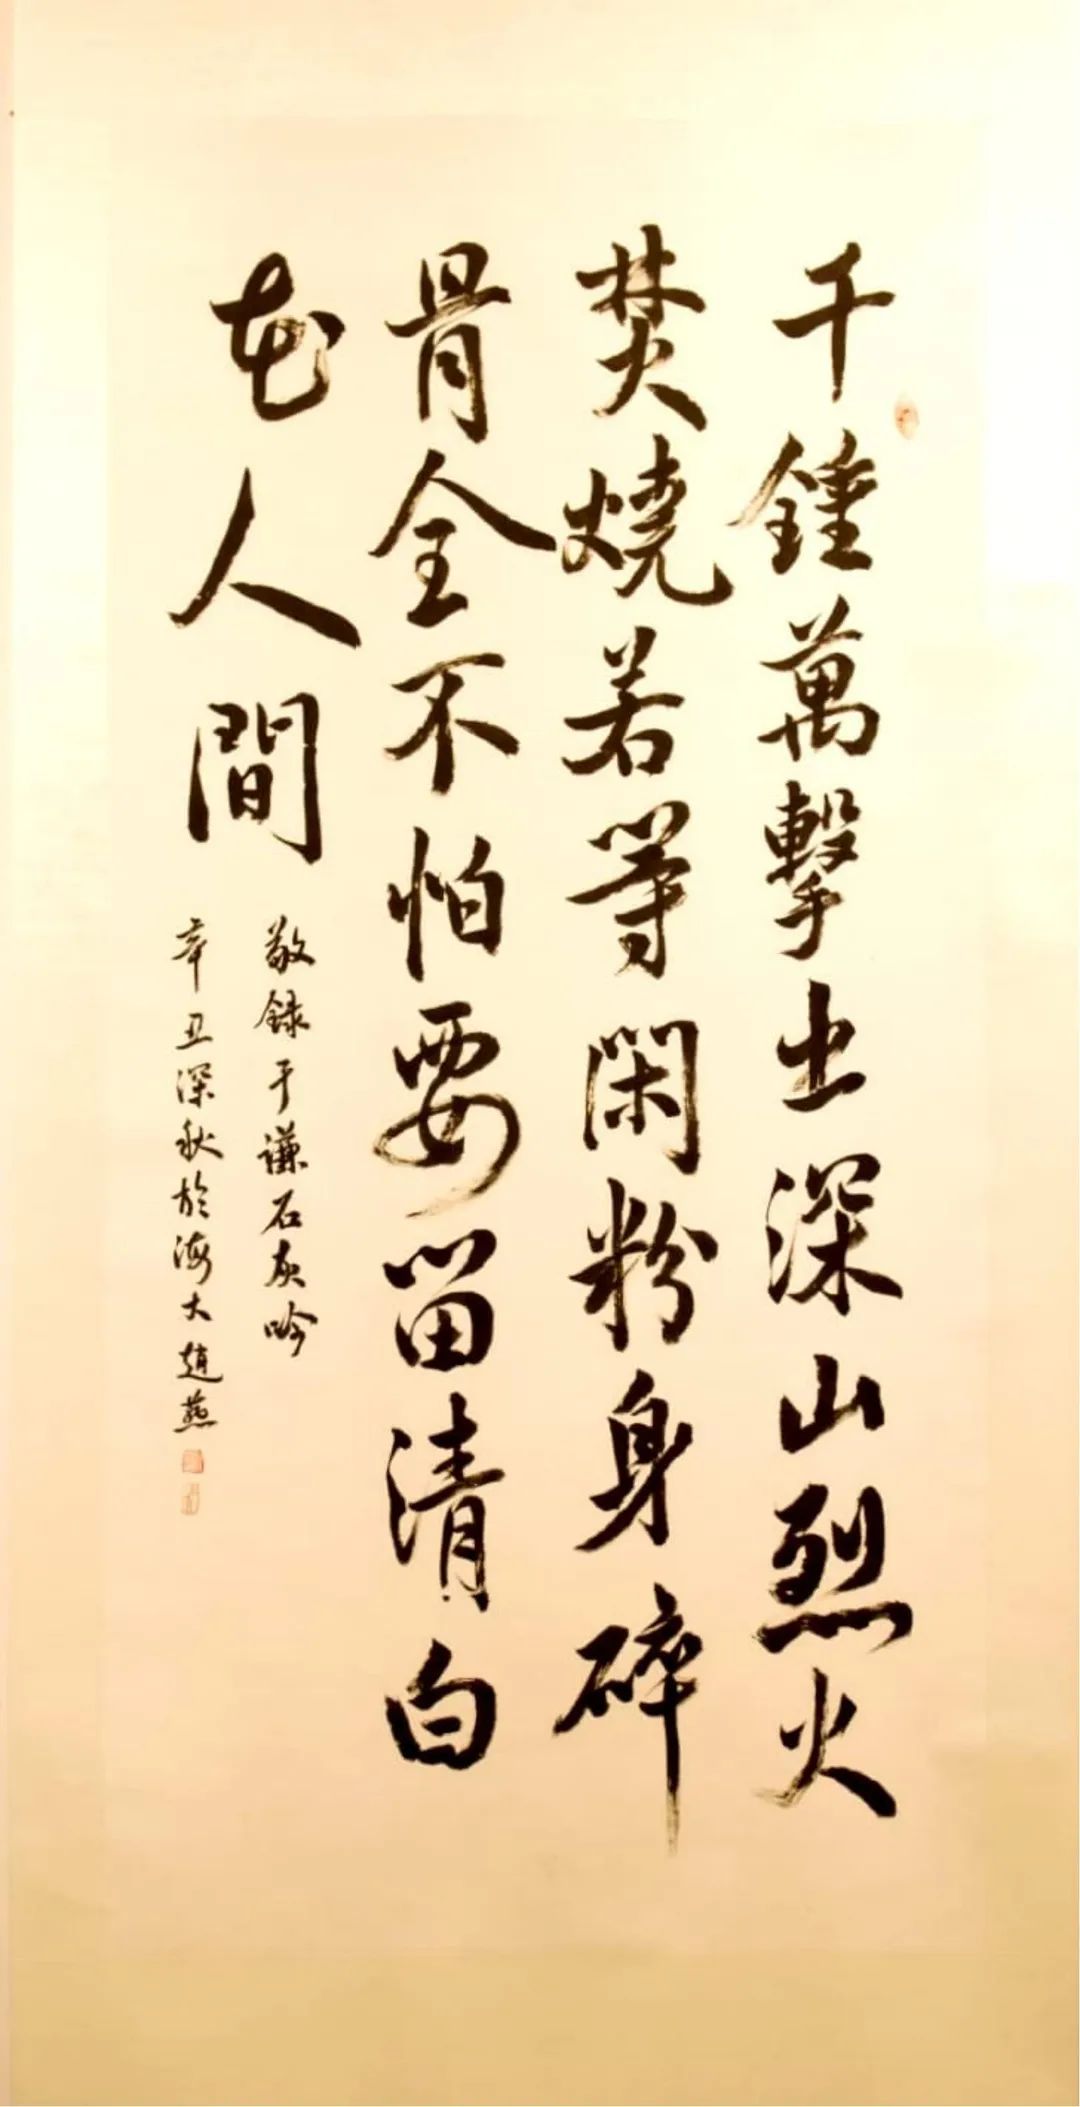 千錘萬擊出深山烈火
焚燒若等閑粉身碎
骨全不怕要留清白
在人間
敬録于謙石灰吟
辛丑深秋於海大趙燕